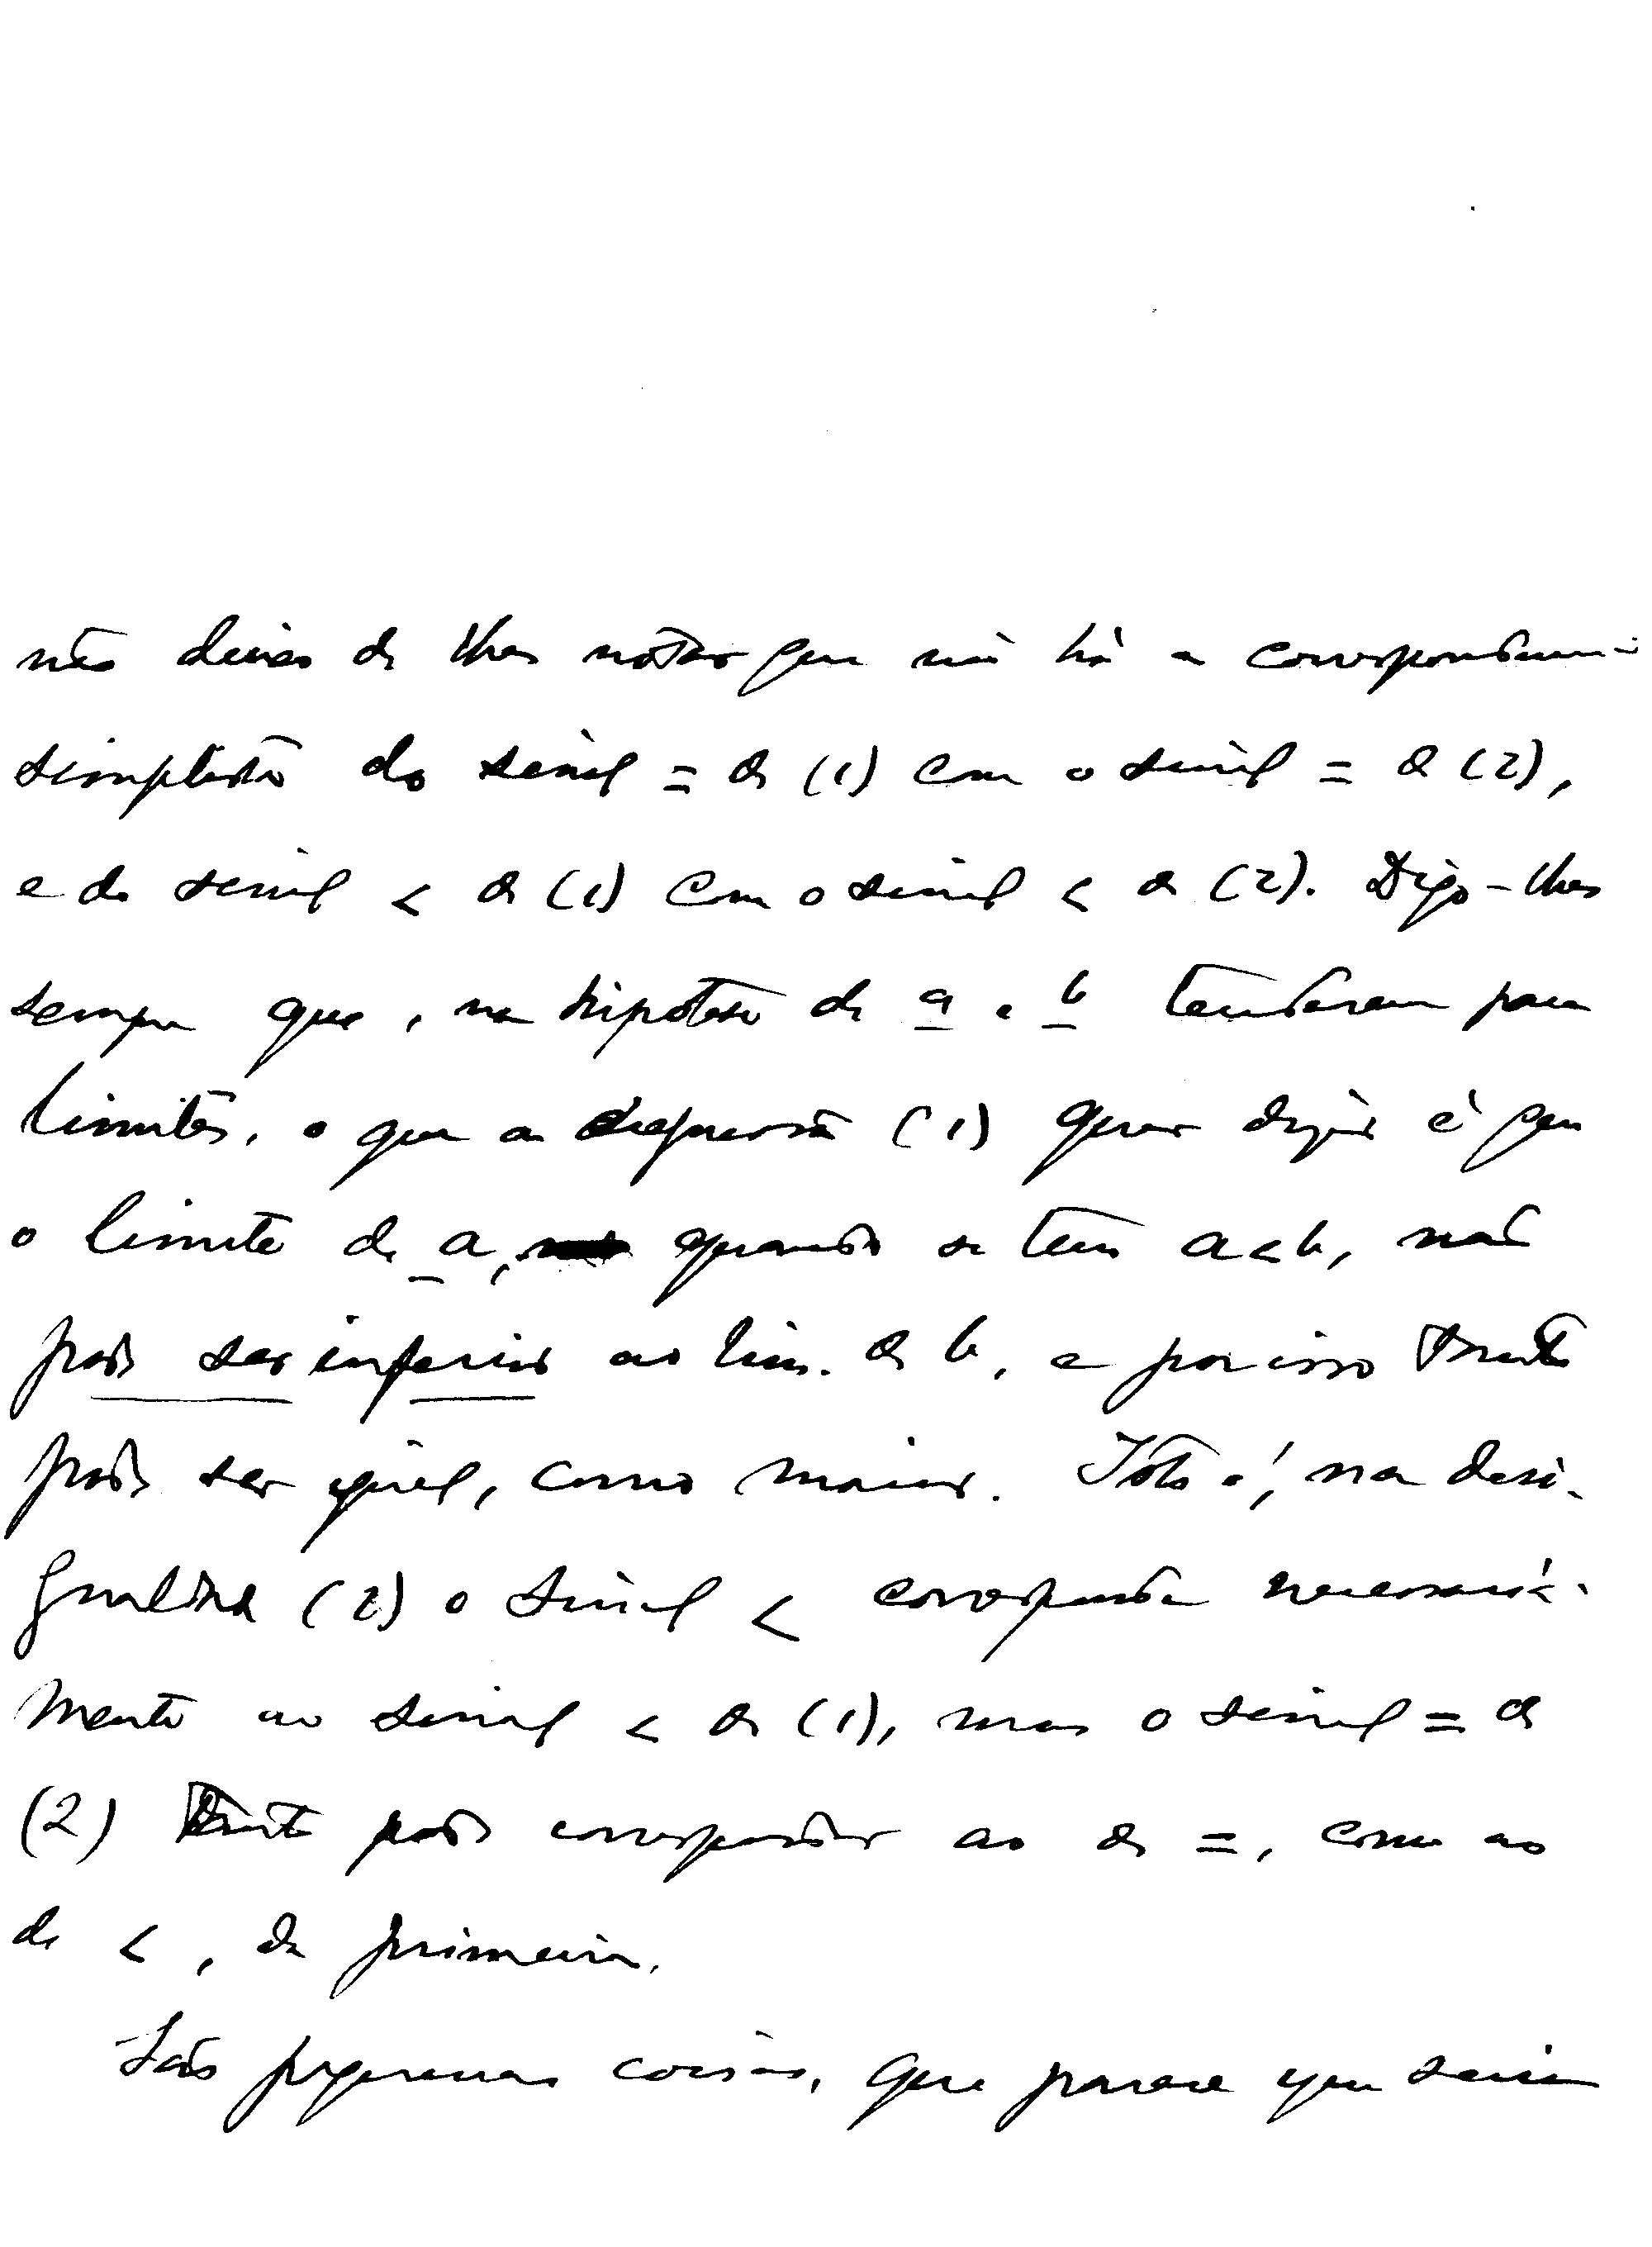 não deixes de lhes notar que não há a correspondencia
simplista do sinal = de (1) com o sinal = de (2),
e do sinal < de (1) com o sinal < de (2). Digo-lhes
sempre que, na hipótese de a e b tenderem para
limites, o que a expressão (1) quer dizer é que
o limite de a, quando se tem a<b, não
pode ser inferior ao lim. de b, e por isso tanto
pode ser igual, como maior. Isto é, na desi-
gualdade (2) o sinal < corresponde necessaria-
mente ao sinal < de (1), mas o sinal = de
(2) tanto pode corresponder ao de =, como ao
de <, da primeira.
São pequenas coisas, que parece que seria